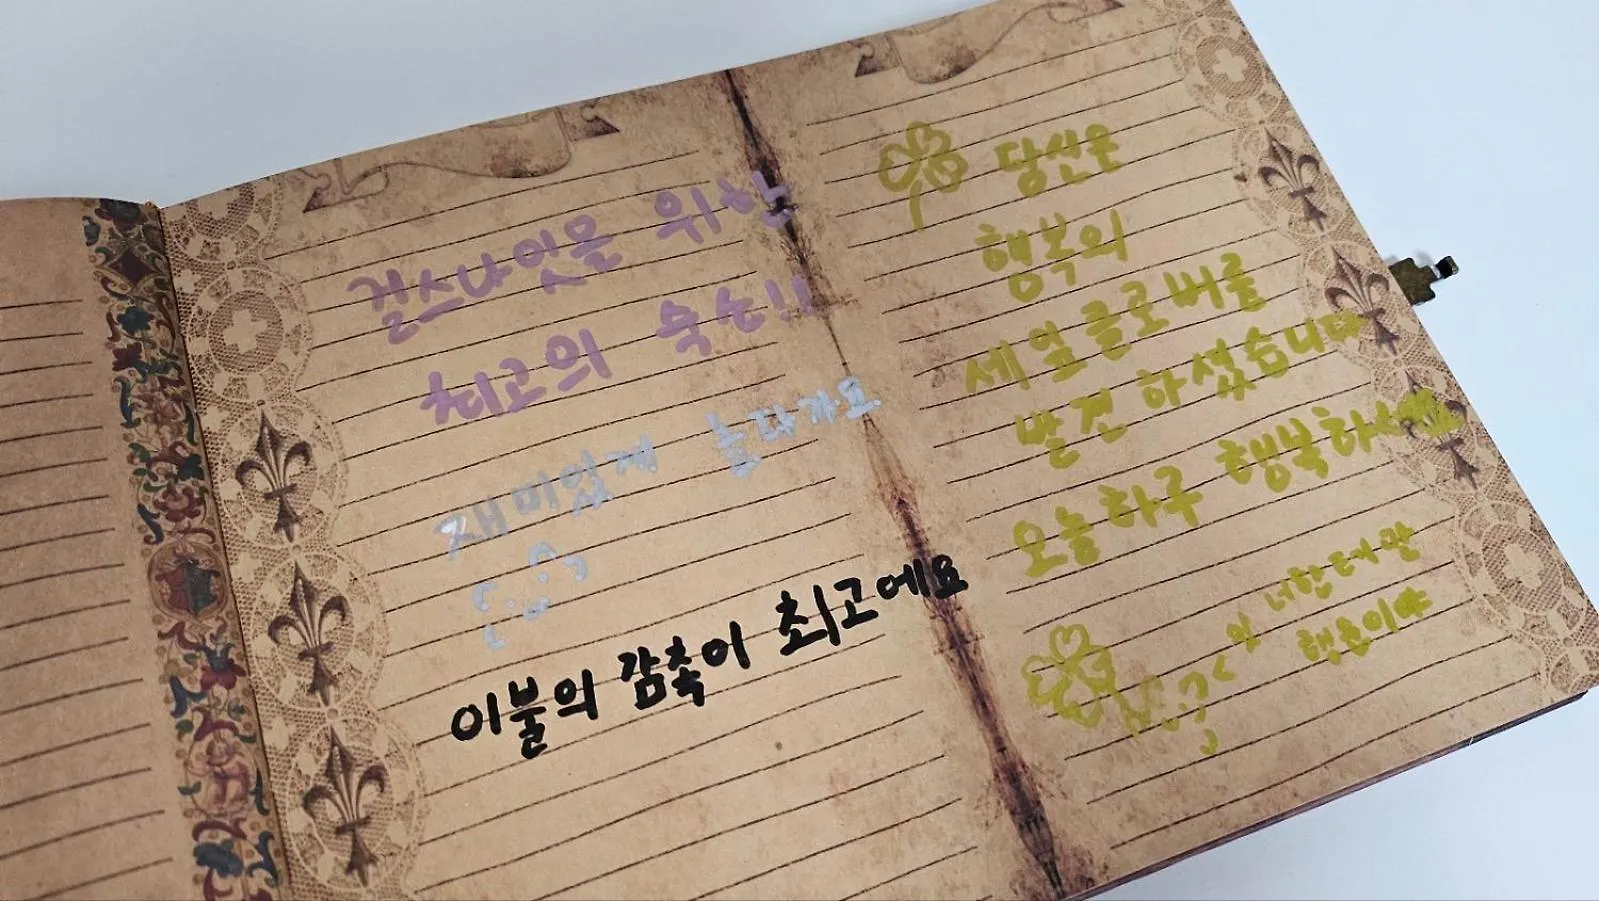 걸스나잇을 위한
최고의 숙소!!
재미있게 놀다가요
이불의 감촉이 최고에요
당신은
행복의
세잎클로버를
발견 하셨습니다
오늘하루 행복하세요
너한테만
행운이야